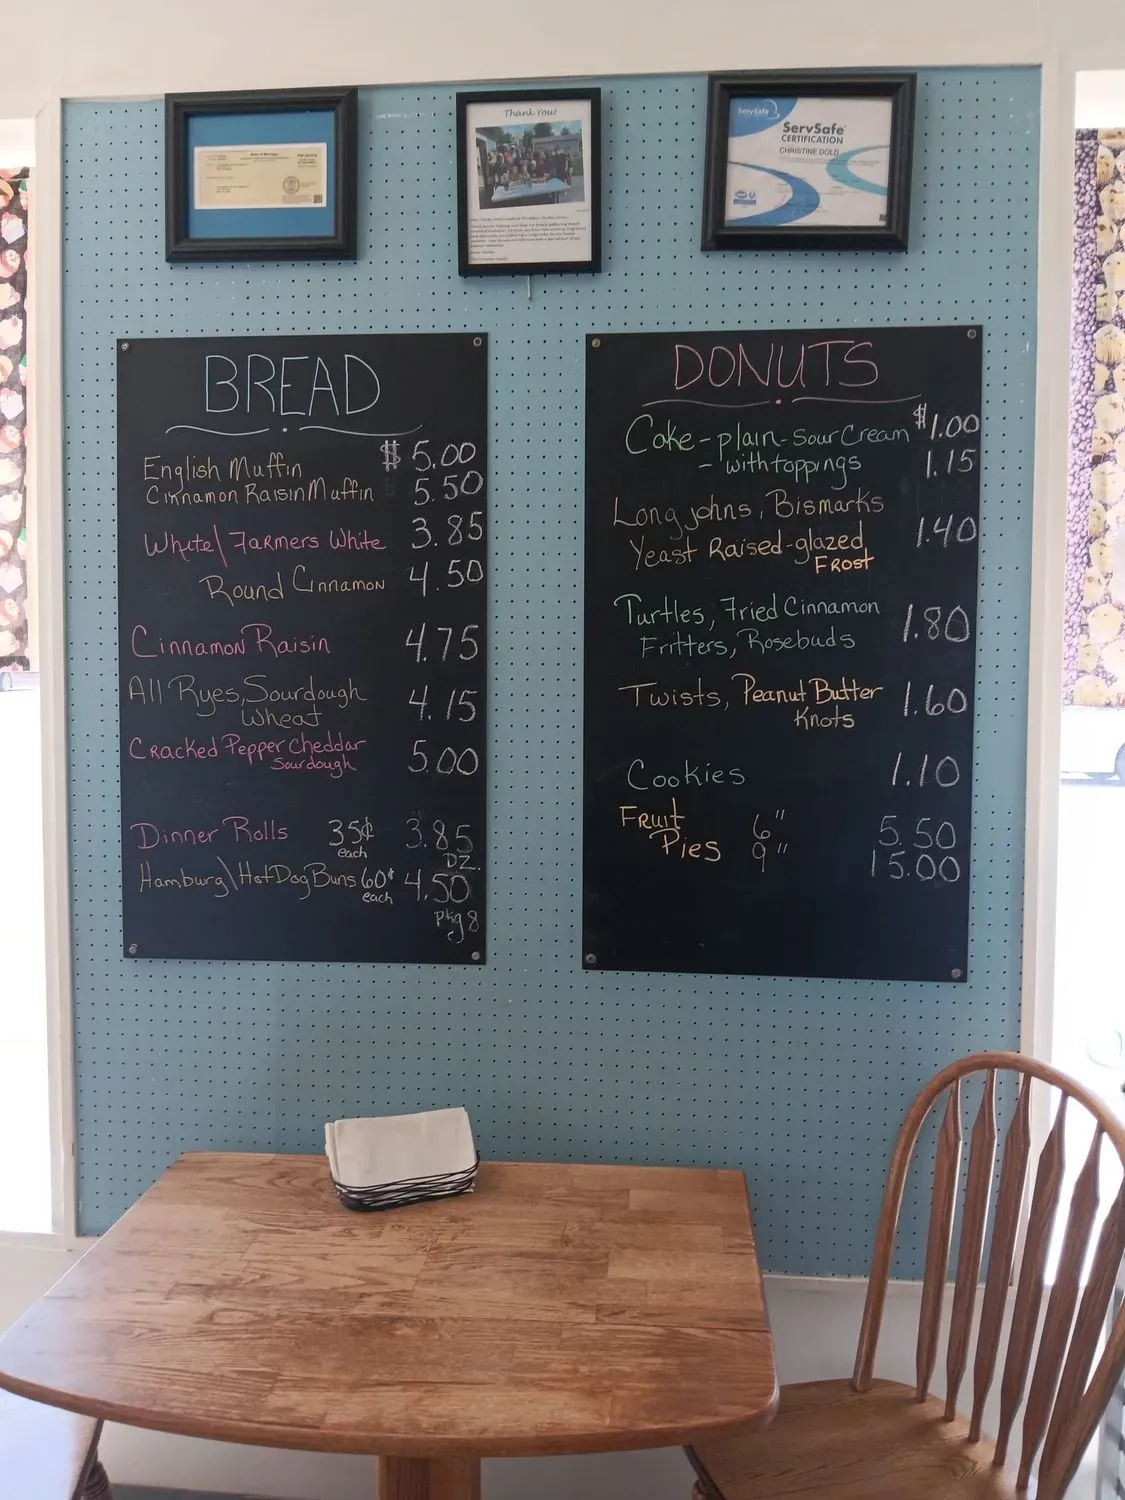 Thank You!
ServSafe
ServSafe
CERTIFICATION
CHRISTINE DOLD
BREAD
English Muffin $ 5.00
Cinnamon Raisin Muffin 5.50
White/Farmers White 3.85
Round Cinnamon 4.50
Cinnamon Raisin 4.75
All Ryes, Sourdough
Wheat 4.15
Cracked Pepper Cheddar
Sourdough 5.00
Dinner Rolls 35¢ each 3.85 DZ.
Hamburg\HotDog Buns 60¢ each 4.50
pkg 8
DONUTS
Cake-plain-Sour Cream $1.00
- with toppings 1.15
Long johns, Bismarks
Yeast Raised-glazed 1.40
Frost
Turtles, Fried Cinnamon
Fritters, Rosebuds 1.80
Twists, Peanut Butter 1.60
Knots
Cookies 1.10
Fruit
Pies 6" 5.50
9" 15.00